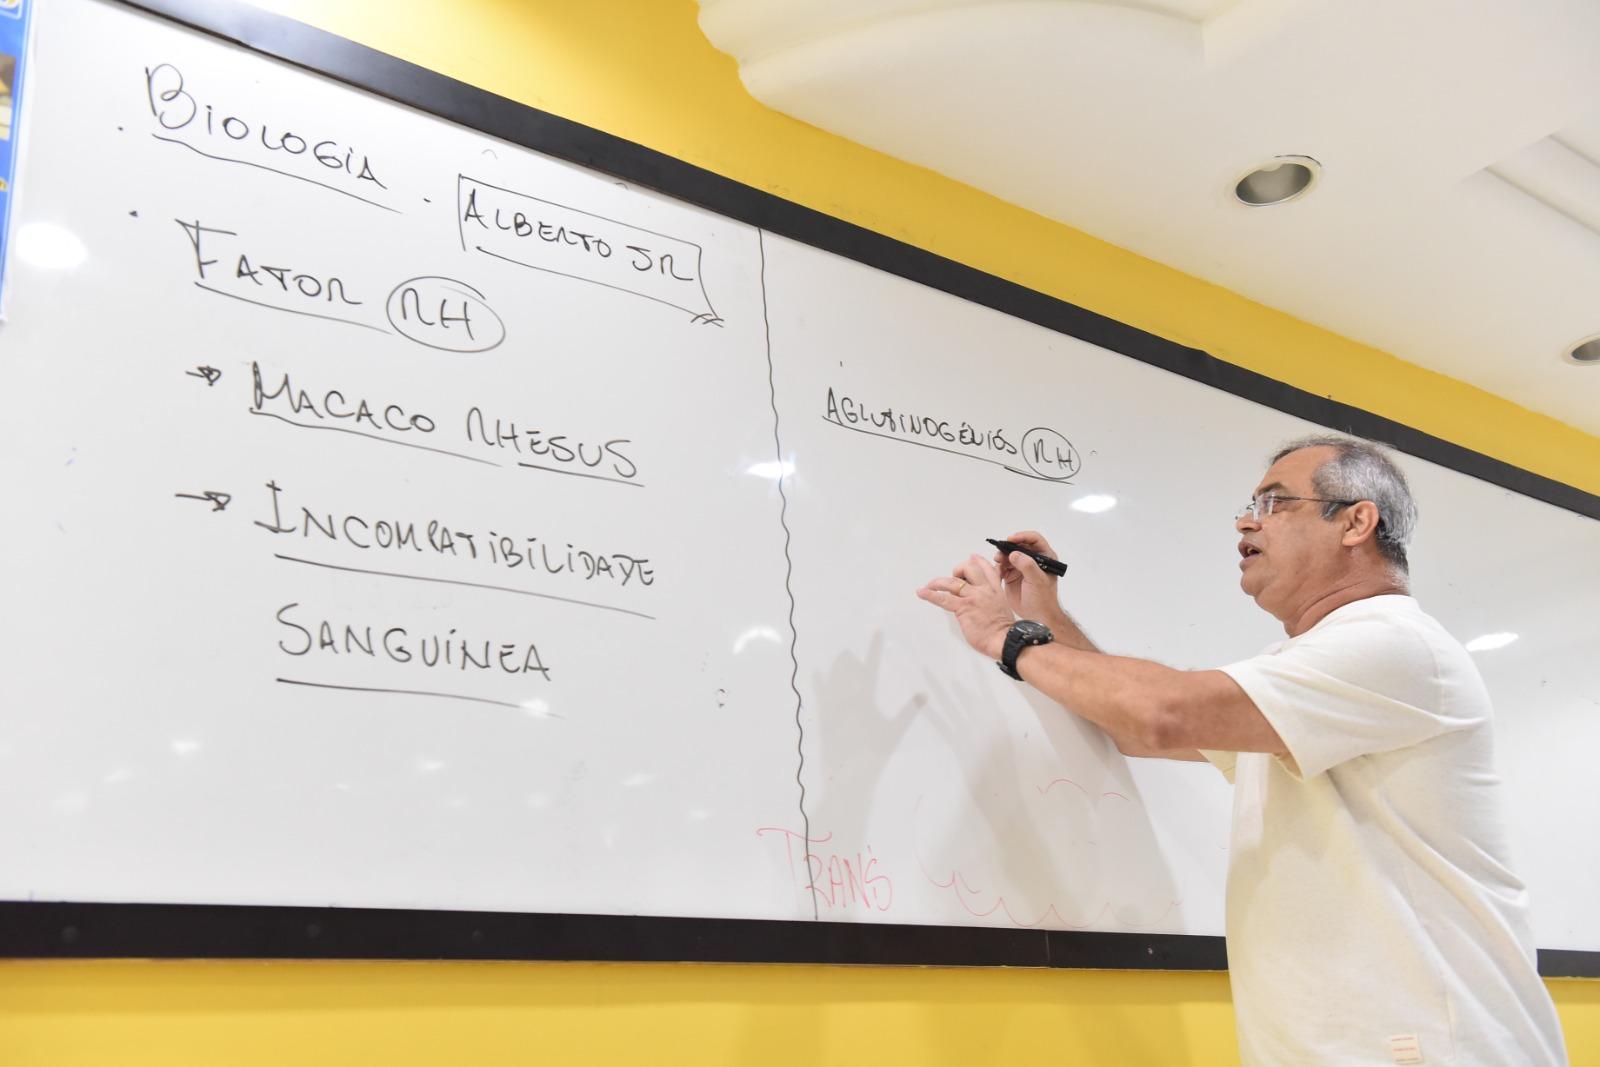 BiOLOGiA
ALBERTO JR
FATOR RH
→ MACACO RHESUS
→ INCOMPATIBILIDADE
SANGUÍNEA
AGLUTINOGÊNIOS RH
TRANS